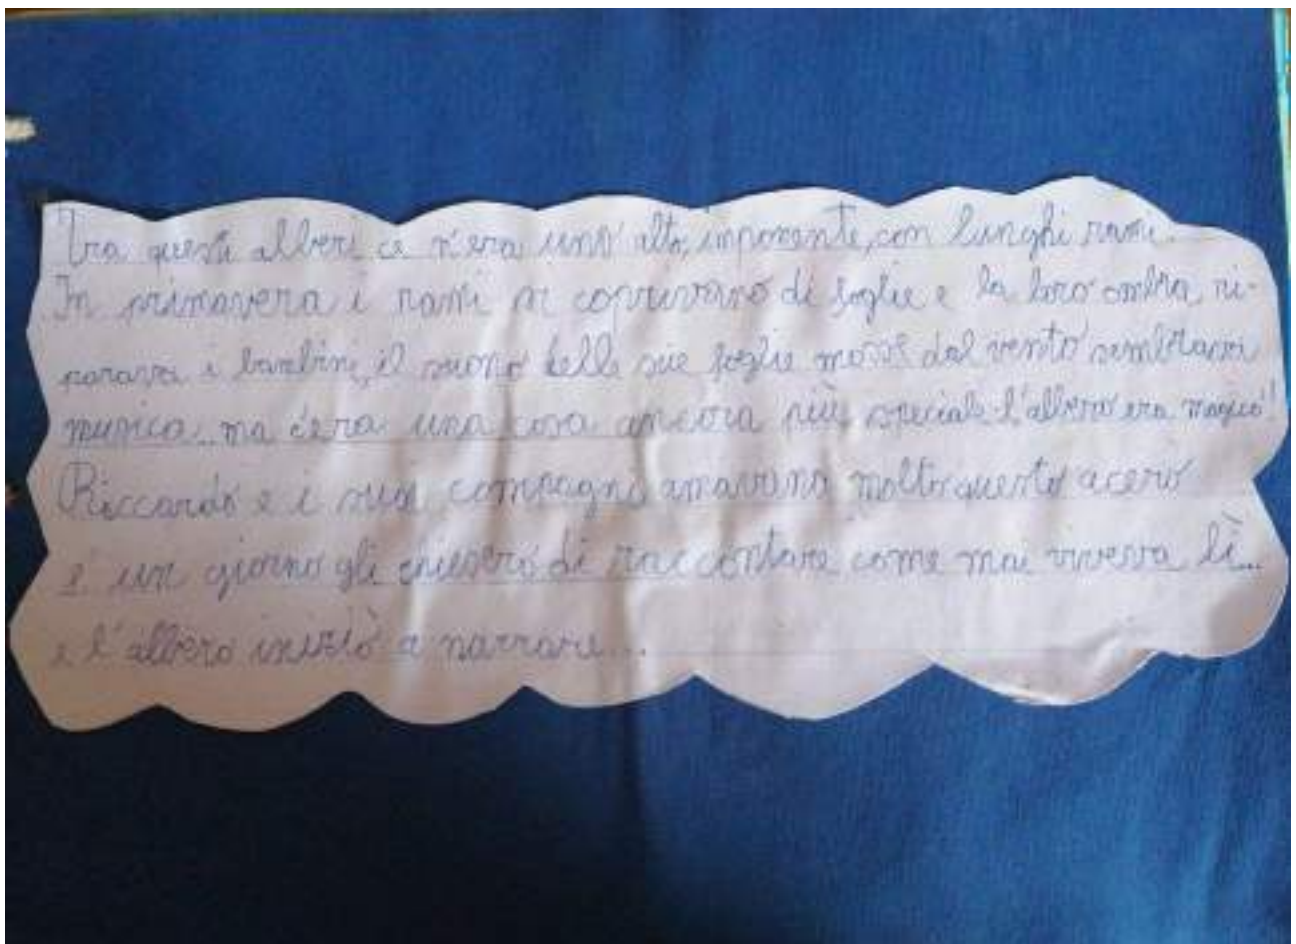 Tra questi alberi ce n'era uno alto, imponente, con lunghi rami.
In primavera i rami si coprivano di foglie e la loro ombra ri-
parava i bambini, il suono delle sue foglie mosse dal vento sembrava
musica... ma c'era una cosa ancora più speciale: l'albero era magico!
Riccardo e i suoi compagni amavano molto questo acero
e un giorno gli chiesero di raccontare come mai viveva lì...
e l'albero iniziò a narrare...